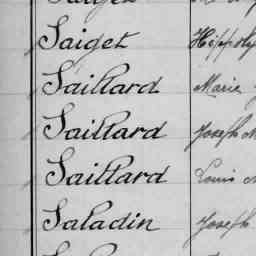 Saiget Hippoly
Saillard Marie
Saillard Joseph M
Saillard Louis
Saladin Joseph